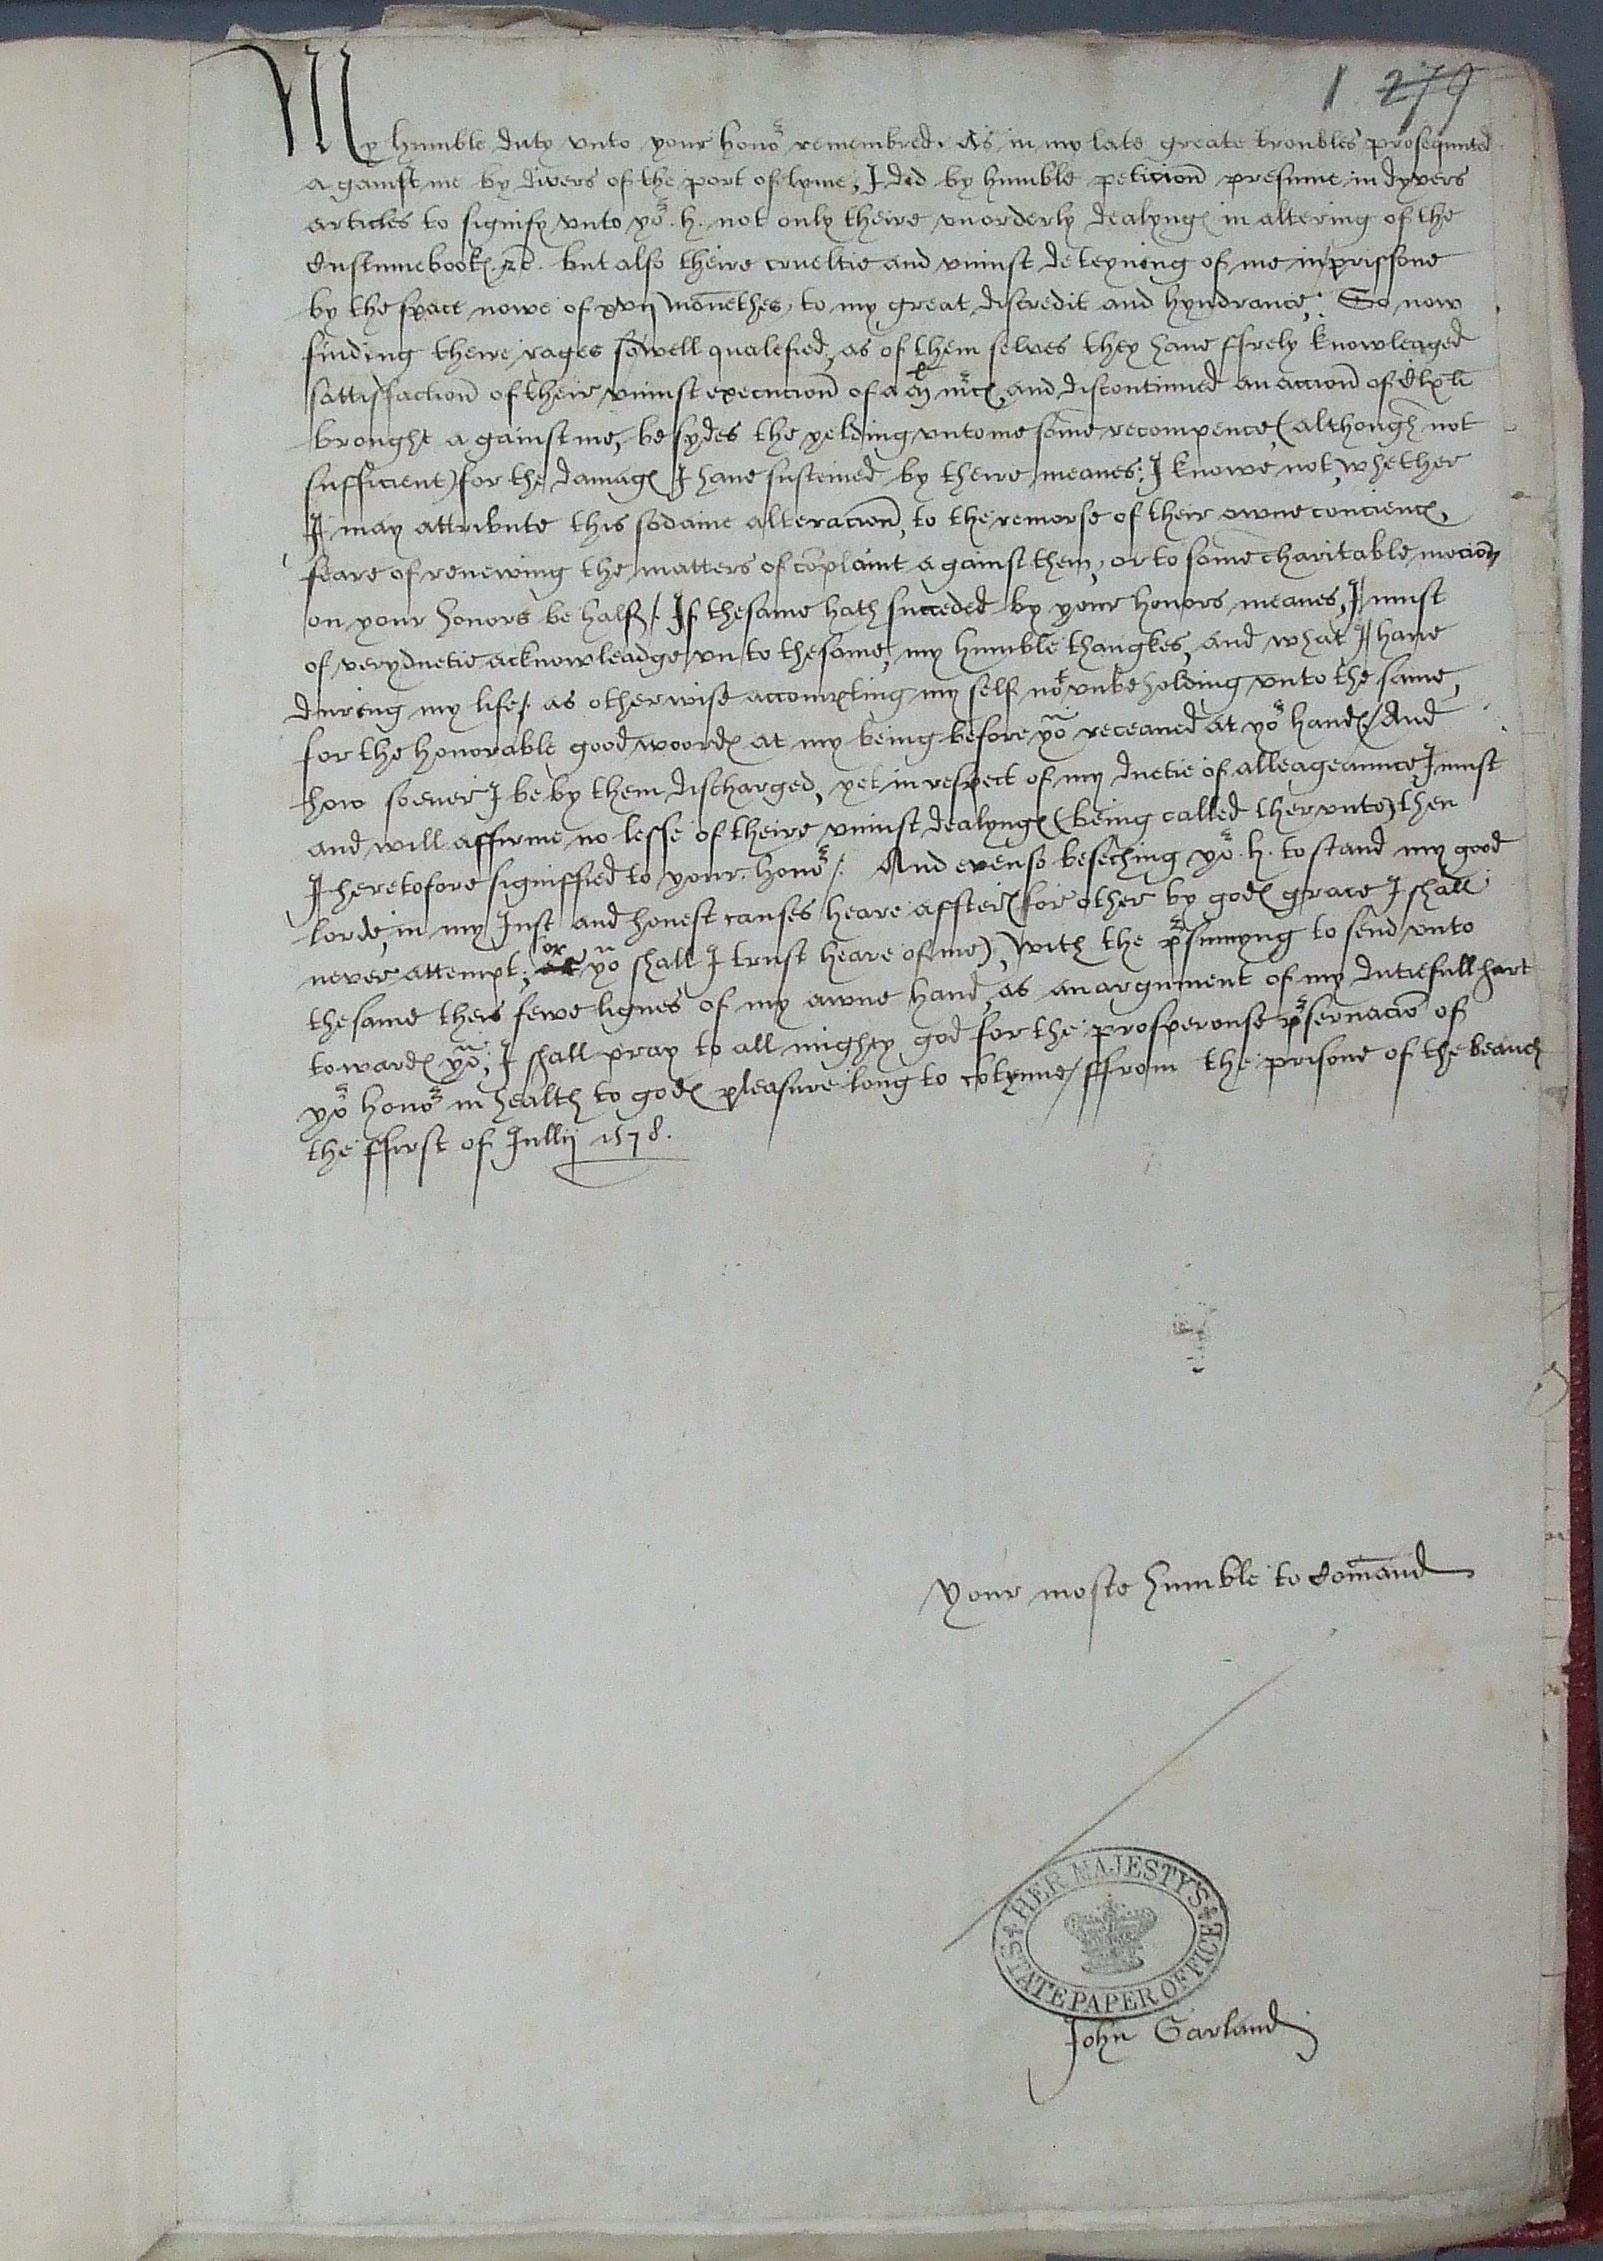 1 279
My humble duty vnto your honor remembred. As in my late greate troubles prosequuted
against me by divers of the port of lyme, I did by humble peticion presume in dyvers
articles to signify vnto yor. h. not only theire vnorderly dealynges in altering of the
Custumebookes. &c. but also theire crueltie and vniust deteyning of me in prissone
by the space nowe of xvij monethes, to my great discredit and hyndrance, So now
finding theire rages so well qualefied, as of them selves they haue ffrely knowleaged
sattisfaction of their vniust execucion of a mrkes, and discontinued an accion of clxli
broughte against me, besydes the yelding vnto me some recompence, (although not
sufficient) for the damages I haue susteined by theire meanes: I knowe not, whether
I may attribute this sodaine alteracion, to the remorse of their owne concience,
feare of renewing the matters of complaint against them, or to some charitable mocion
on your honors be half /. If thesame hath succeded by your honors meanes, I must
of veryduetie acknowleadge vn to thesame, my humble thangkes, and what I haue
during my life /. as otherwise accompting my self not vnbeholding vnto the same,
for the honorable good woordes at my being before yo receaued at yor handes / And
how soeuer I be by them discharged, yet in respect of my duetie of alleageaunce, I must
and will affirme no lesse of theire vniust dealynges (being called thervnto) then
I heretofore signiffied to your honor /. And even so beseching yor. h. to stand my good
lorde, in my Iust and honest causes heare affter (for other by godes grace I shall
never attempt; or yo shall I trust heare of me), With the presumyng to send vnto
thesame theis fewe lignes of my awne hand, as an argument of my dutiefull hart
towardes yo; I shall pray to all mighty god for the prosperouse preseruacio of
yor honor in health to godes pleasure long to cotynue / ffrom the prisone of the beanch
the ffirst of Iullij 1578.
Your moste humble to comand
HER MAJESTY'S STATE PAPER OFFICE
John Garland